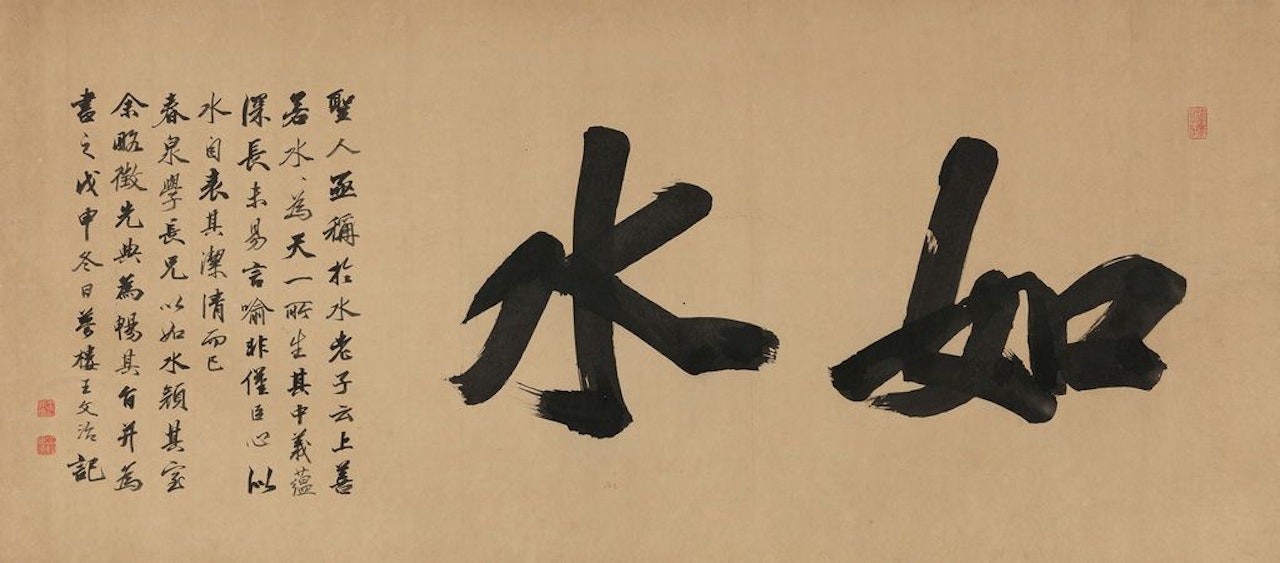 如水
聖人亟稱於水老子云上善
若水、為天一所生其中義蘊
深長未易言喻非僅臣心似
水自表其潔清而已
春泉學長兄以如水顏其室
余略徵先典為暢其旨并為
書之戊申冬日夢樓王文治記